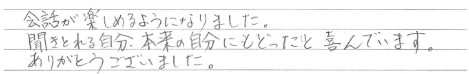 会話が楽しめるようになりました。
聞きとれる自分、本来の自分にもどったと喜んでいます。
ありがとうございました。